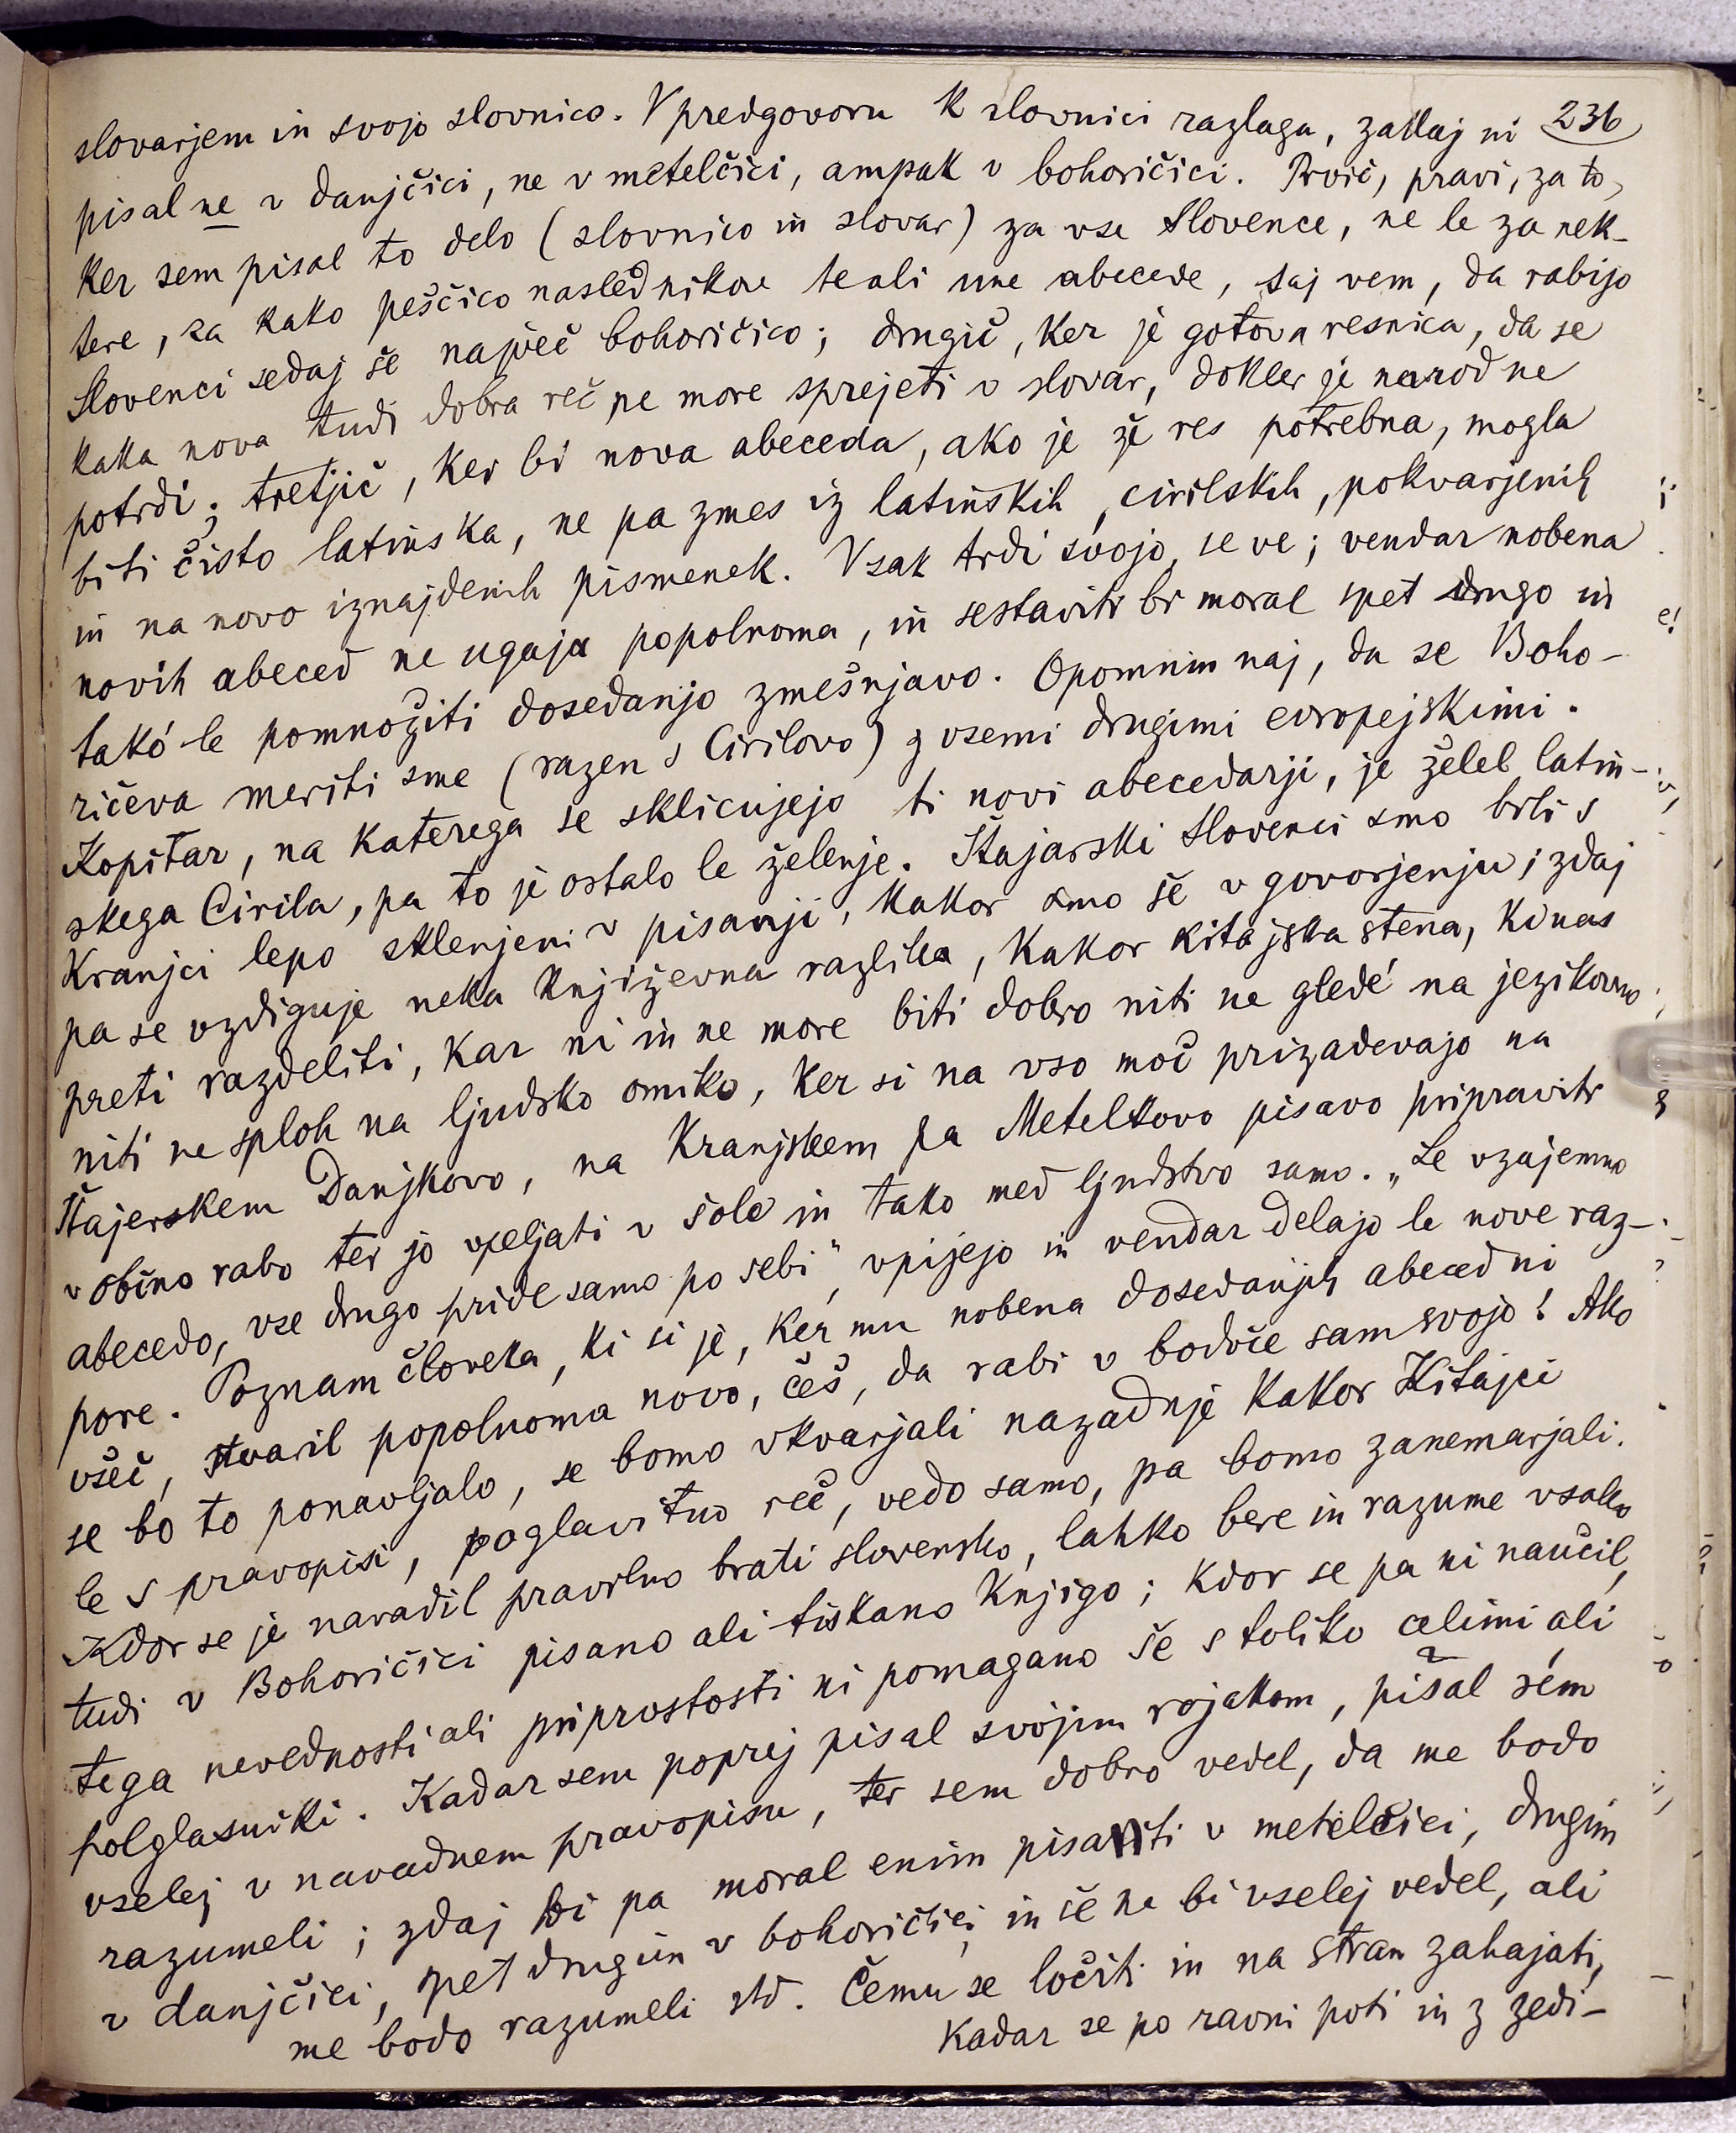 slovarjem in svojo slovnico. V predgovoru k slovnici razlaga, zakaj ni 236
pisal ne v danjčici, ne v metelčici, ampak v bohoričici. Prvič, pravi, zato,
ker sem pisal to delo (slovnico in slovar) za vse Slovence, ne le za nek-
tere, za kako peščico naslednikov te ali une abecede, saj vem, da rabijo
Slovenci sedaj še največ bohoričico; drugič, ker je gotova resnica, da se
kaka nova tudi dobra reč ne more sprejeti v slovar, dokler je narod ne
potrdi; tretjič, ker bi nova abeceda, ako je že res potrebna, mogla
biti čisto latinska, ne pa zmes iz latinskih, cirilskih, pokvarjenih
in na novo iznajdenih pismenek. Vsak trdi svojo, se ve; vendar nobena
novih abeced ne ugaja popolnoma, in sestaviti bi moral spet drugo in
takó le pomnožiti dosedanjo zmešnjavo. Opomnim naj, da se Boho-
ričeva meriti sme (razen s Cirilovo) z vsemi drugimi evropejskimi.
Kopitar, na katerega se sklicujejo ti novi abecedarji, je želel latin-
skega Cirila, pa to je ostalo le želenje. Štajarski Slovenci smo bili s
Kranjci lepo sklenjeni v pisanji, kakor smo še v govorjenju; zdaj
pa se vzdiguje neka književna razlika, kakor kitajska stena, ki nas
preti razdeliti, kar ni in ne more biti dobro niti ne gledé na jezikovno
niti ne sploh na ljudsko omiko, ker si na vso moč prizadevajo na
Štajerskem Danjkovo, na Kranjskem pa Metelkovo pisavo pripraviti
v občno rabo ter jo vpeljati v šole in tako med ljudstvo samo. „Le vzajemno
abecedo, vse drugo pride samo po sebi“, vpijejo in vendar delajo le nove raz-
pore. Poznam človeka, ki si je, ker mu nobena dosedanjih abeced ni
všeč, stvaril popolnoma novo, češ, da rabi v bodoče sam svojo! Ako
se bo to ponavljalo, se bomo ukvarjali nazadnje kakor Kitajci
le s pravopisi, poglavitno reč, vedo samo, pa bomo zanemarjali.
Kdor se je navadil pravilno brati slovensko, lahko bere in razume vsako
tudi v Bohoričici pisano ali tiskano knjigo; kdor se pa ni naučil,
tega nevednosti ali priprostosti ni pomagano še s toliko celimi ali
polglasniki. Kadar sem poprej pisal svojim rojakom, pisal sem
vselej v navadnem pravopisu, ter sem dobro vedel, da me bodo
razumeli; zdaj bi pa moral enim pisariti v metelčici, drugim
v danjčici, spet drugim v bohoričici, in še ne bi vselej vedel, ali
me bodo razumeli itd. Čemu se ločiti in na stran zahajati,
kadar se po ravni poti in z zedi-